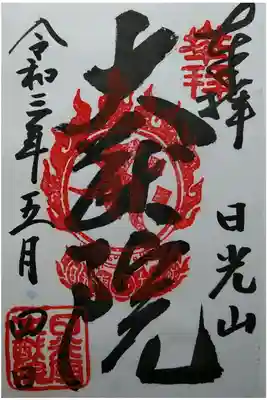 奉拝
日光山
大猷院
令和三年五月四日